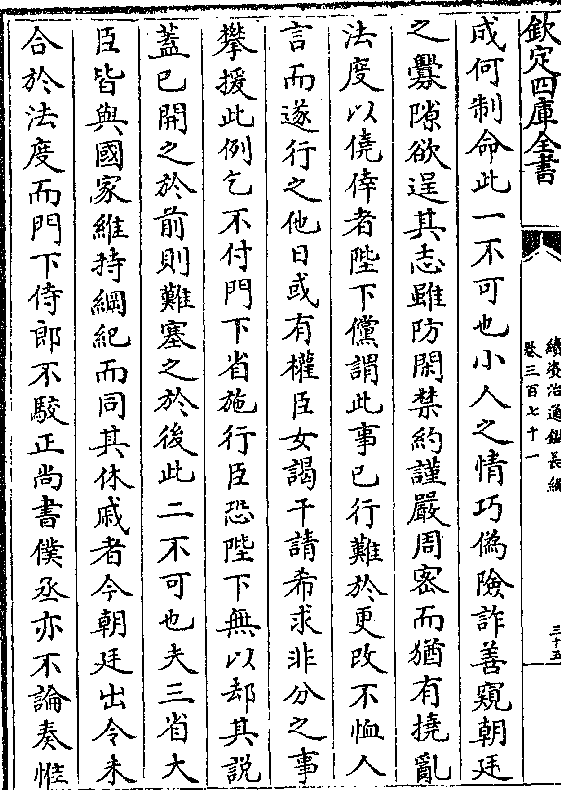 欽定四庫全書
續資治通鑑長編
卷三百七十一
三十五
成何制命此一不可也小人之情巧偽險詐善窺朝廷
之釁隙欲逞其志雖防閑禁約謹嚴周密而猶有撓亂
法度以僥倖者陛下儻謂此事已行難於更改不恤人
言而遂行之他日或有權臣女謁干請希求非分之事
攀援此例乞不付門下省施行臣恐陛下無以却其説
蓋已開之於前則難塞之於後此二不可也夫三省大
臣皆與國家維持綱紀而同其休戚者今朝廷出令未
合於法度而門下侍郎不駮正尚書僕丞亦不論奏惟